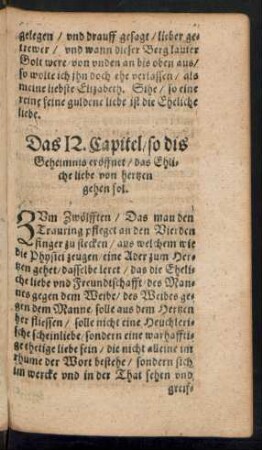 gelegen / vnd drauff gesagt / lieber ge-
trewer / vnd wann dieser Berg lauter
Golt were / von vnden an bis oben aus /
so wolte ich jhn doch ehe verlassen / als
meine liebste Elizabeth. Sihe / so eine
reine feine guldene liebe ist die Eheliche
liebe.
Das 12. Capitel / so dis
Geheimnis eröffnet / das Ehli-
che liebe von hertzen
gehen sol.
ZVm Zwölfften / Das man den
Trauring pfleget an den Vierden
finger zu stecken / aus welchem wie
die Physici zeugen / eine Ader zum Her-
tzen gehet / dasselbe leret / das die Eheli-
che liebe vnd Freundtschafft des Man-
nes gegen dem Weibe / des Weibes ge-
gen dem Manne / solle aus dem Hertzen
her fliessen / solle nicht eine Heuchleri-
sche scheinliebe / sondern eine warhaffti-
ge thetige liebe sein / die nicht alleine im
rhume der Wort bestehe / sondern sich
im wercke vnd in der That sehen vnd
greif-